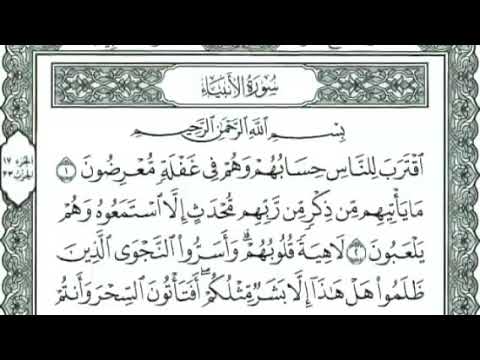 سُورَةُ الأَنبِيَاءِ
بِسْمِ ٱللَّهِ ٱلرَّحْمَٰنِ ٱلرَّحِيمِ
ٱقْتَرَبَ لِلنَّاسِ حِسَابُهُمْ وَهُمْ فِى غَفْلَةٍ مُّعْرِضُونَ ١
مَا يَأْتِيهِم مِّن ذِكْرٍ مِّن رَّبِّهِم مُّحْدَثٍ إِلَّا ٱسْتَمَعُوهُ وَهُمْ
يَلْعَبُونَ ٢ لَاهِيَةً قُلُوبُهُمْ ۗ وَأَسَرُّوا۟ ٱلنَّجْوَى ٱلَّذِينَ
ظَلَمُوا۟ هَلْ هَٰذَآ إِلَّا بَشَرٌ مِّثْلُكُمْ ۖ أَفَتَأْتُونَ ٱلسِّحْرَ وَأَنتُمْ
الجزء ١٧
الحزب ٣٣